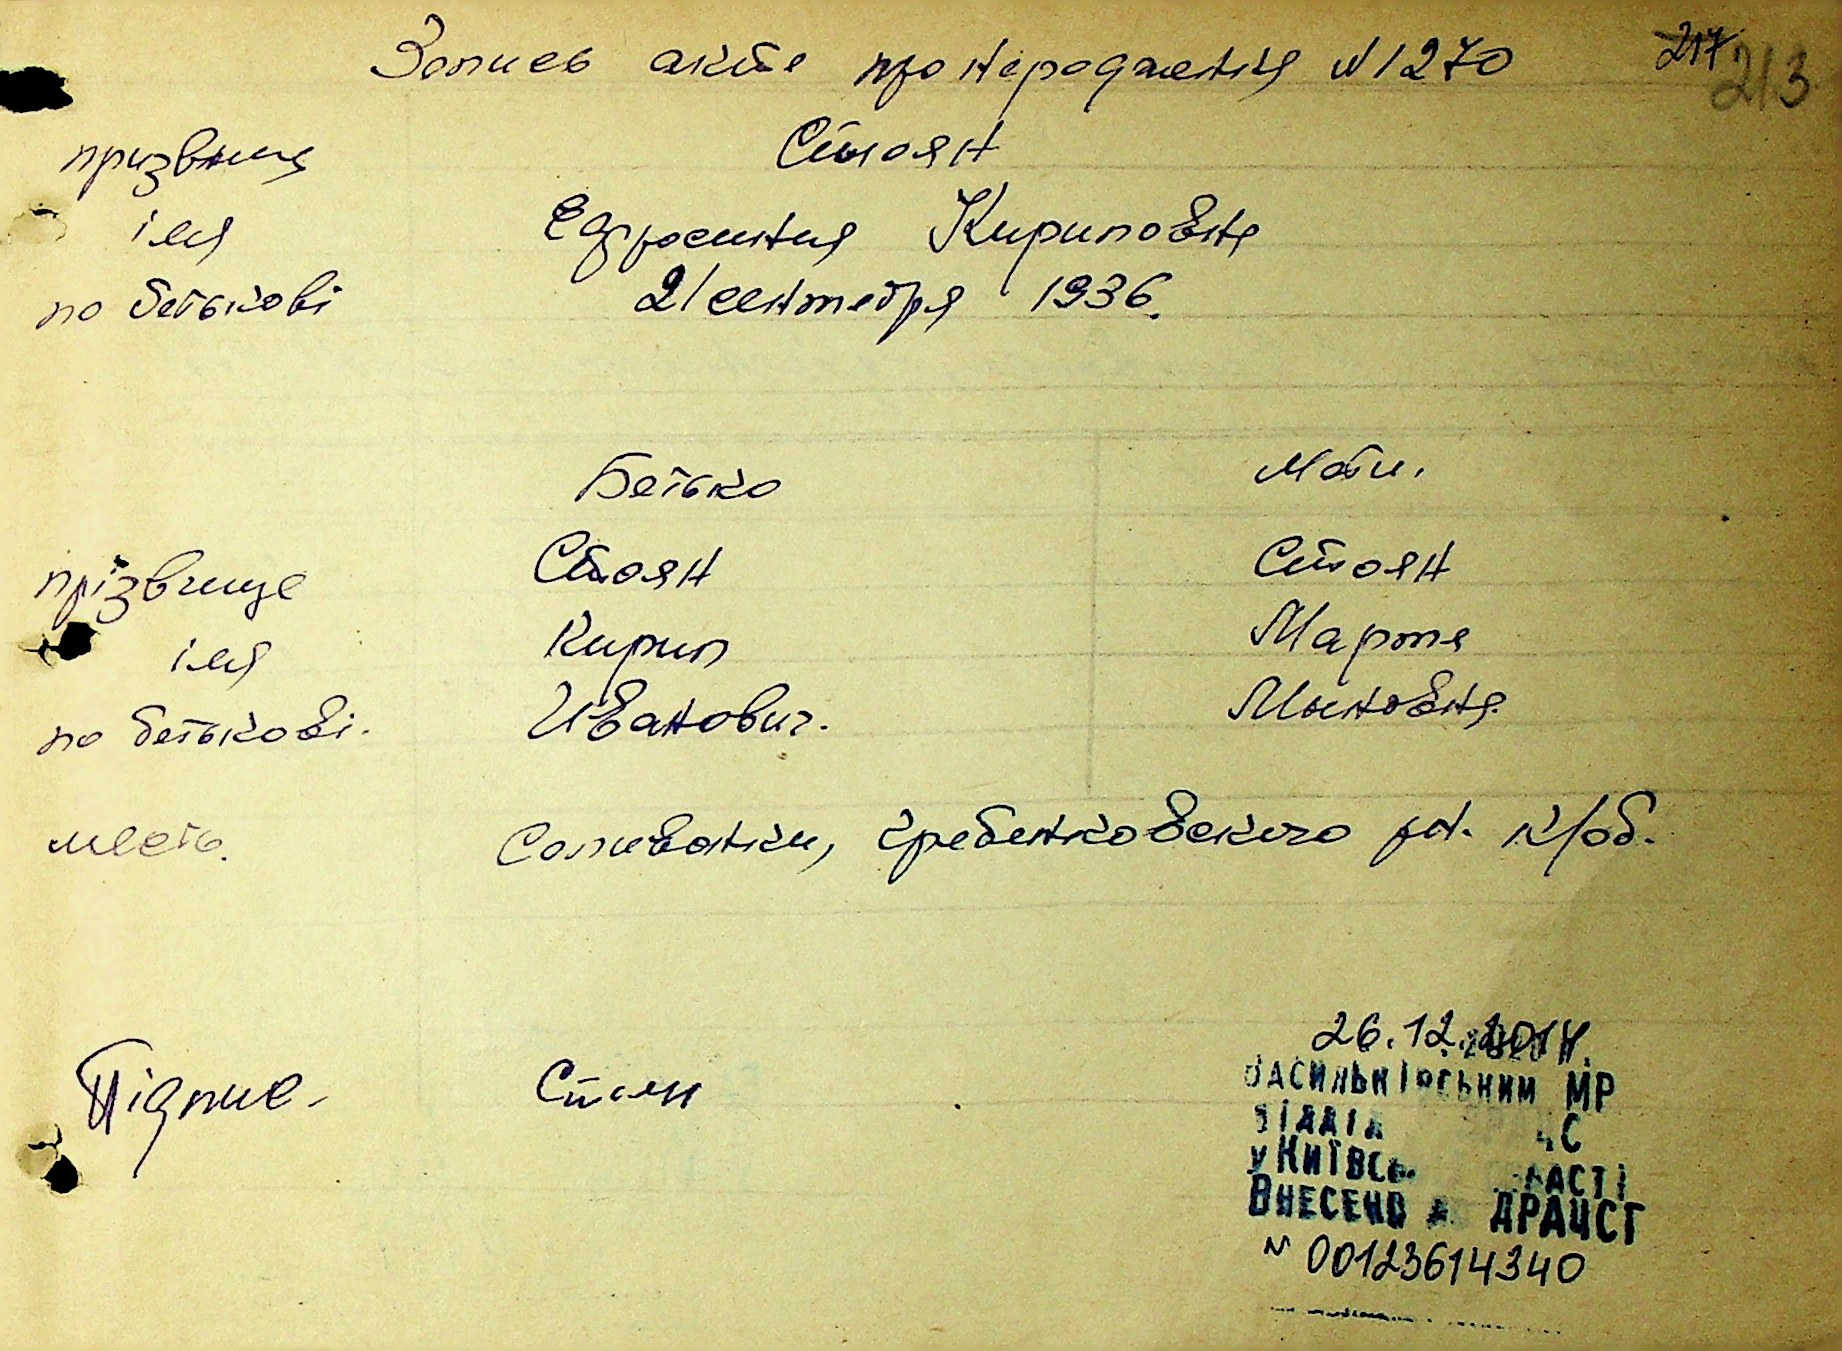 Запись акта про нараджения N 1270 217 213
призвище Стоян
імя Ефросиния Кириловна
по батькові 21 сентября 1936.
Батько Мати.
прізвище Стоян Стоян
імя Кирил Марта
по батькові. Иванович. Миновна
место. Саливанки, Гребенковского рн. к/об.
Підпис. Стоян
26.12.2014.
Васильківським МР
відділ ЧС
у Київсь ласті
Внесено до ДРАЦСГ
N 00123614340